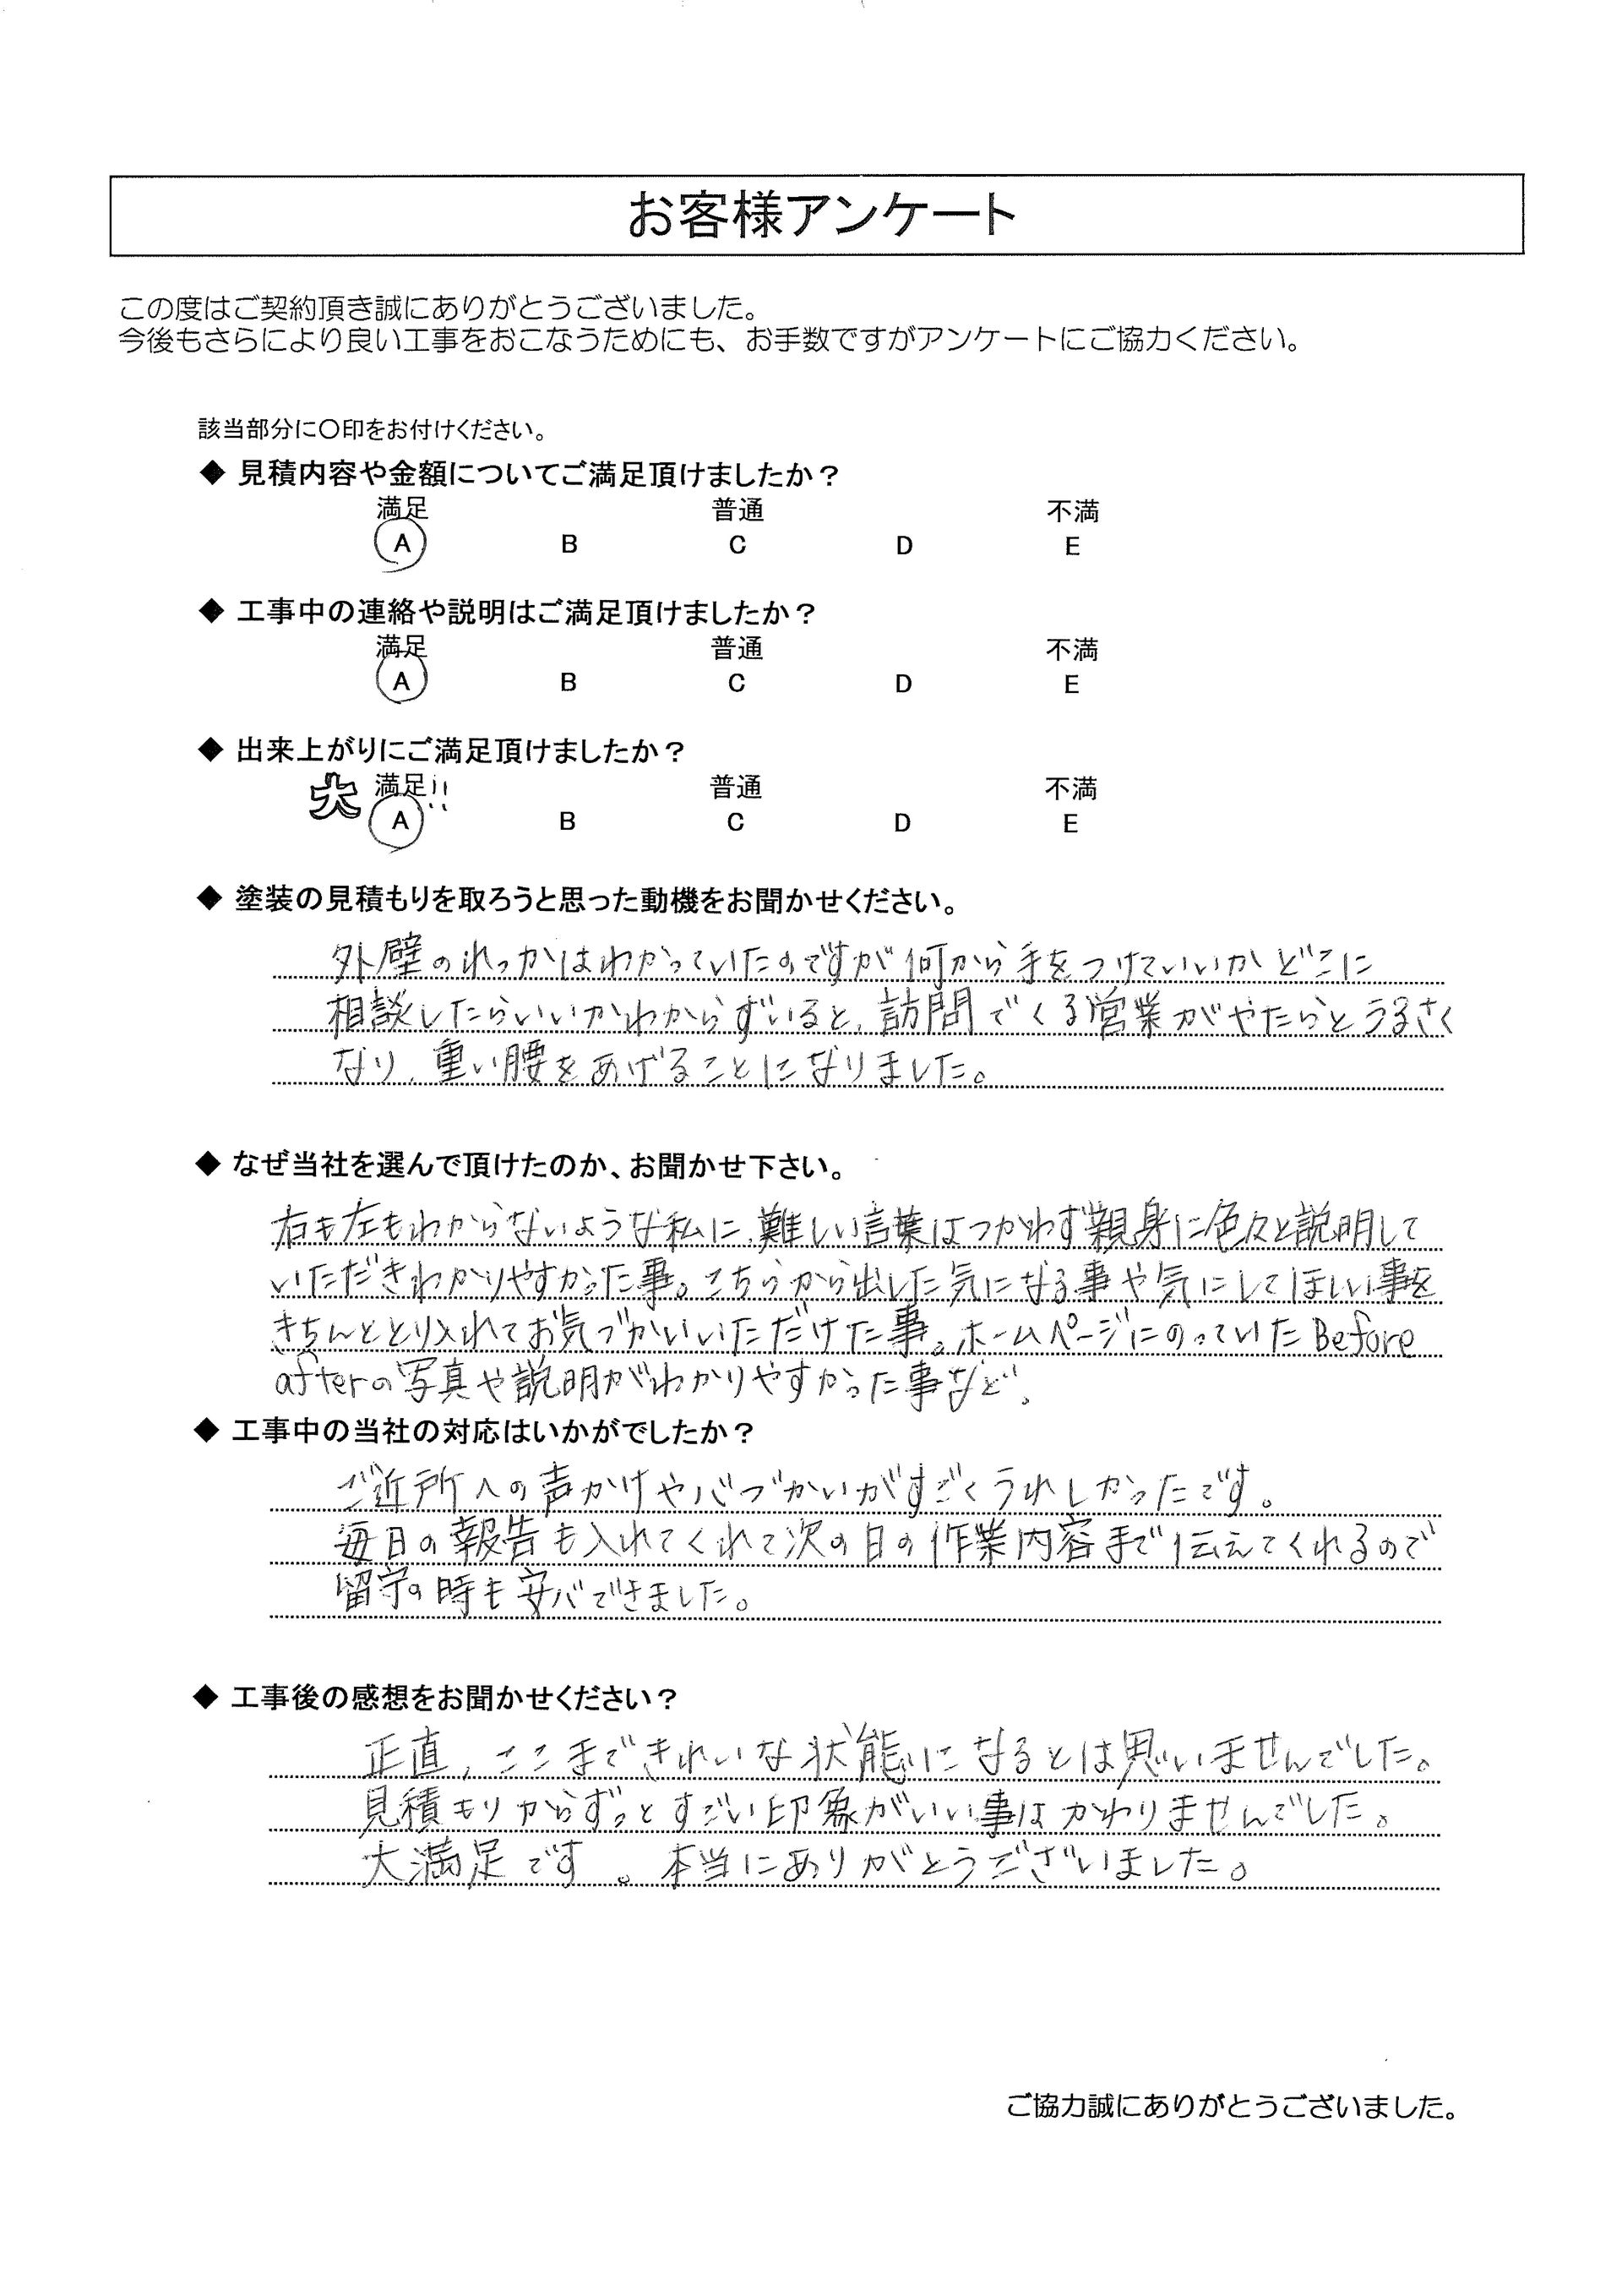 お客様アンケート
この度はご契約頂き誠にありがとうございました。
今後もさらにより良い工事をおこなうためにも、お手数ですがアンケートにご協力ください。
該当部分に〇印をお付けください。
◆ 見積内容や金額についてご満足頂けましたか？
満足 普通 不満
A B C D E
◆ 工事中の連絡や説明はご満足頂けましたか？
満足 普通 不満
A B C D E
◆ 出来上がりにご満足頂けましたか？
大 満足!! 普通 不満
A B C D E
◆ 塗装の見積もりを取ろうと思った動機をお聞かせください。
外壁のれっかはわかっていたのですが何から手をつけていいかどこに
相談したらいいかわからずいると、訪問でくる営業がやたらとうるさく
なり、重い腰をあげることになりました。
◆ なぜ当社を選んで頂けたのか、お聞かせ下さい。
右も左もわからないような私に、難しい言葉はつかわず親身に色々と説明して
いただきわかりやすかった事。こちらから出した気になる事や気にしてほしい事を
きちんととり入れてお気づかいいただけた事。ホームページにのっていたBefore
afterの写真や説明がわかりやすかった事など。
◆ 工事中の当社の対応はいかがでしたか？
ご近所への声かけや心づかいがすごくうれしかったです。
毎日の報告も入れてくれて次の日の作業内容まで伝えてくれるので
留守の時も安心できました。
◆ 工事後の感想をお聞かせください？
正直、ここまできれいな状態になるとは思いませんでした。
見積もりからずっとすごい印象がいい事はかわりませんでした。
大満足です。本当にありがとうございました。
ご協力誠にありがとうございました。